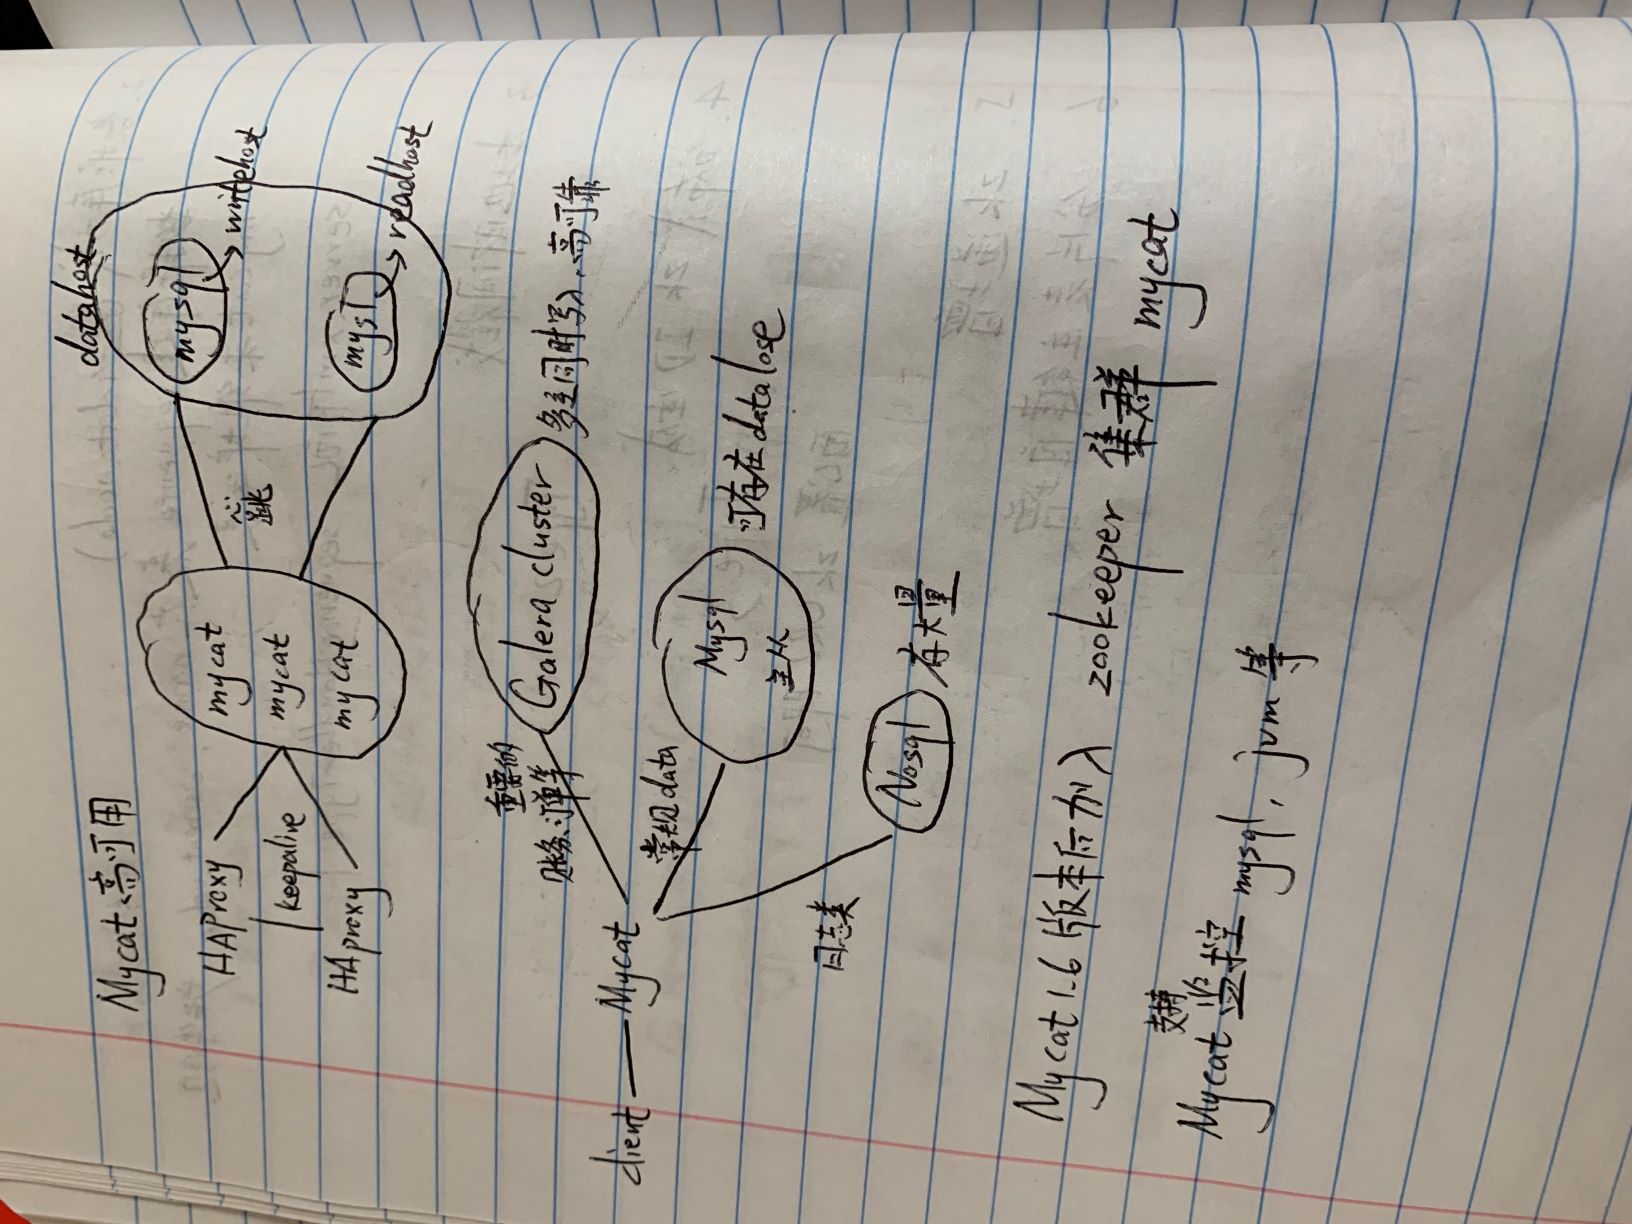 Mycat 高可用
datahost
HAProxy
keepalive
HAproxy
mycat
mycat
mycat
心跳
mysql
writehost
mysl
readhost
重要的
账务、订单等
Galera cluster
多主同时写入、高可靠
client — Mycat
常规data
Mysql
主从
可存在data lose
日志类
Nosql
存大量
Mycat 1.6 版本后加入 zookeeper 集群 mycat
支持
Mycat 监控 mysql, jvm 等